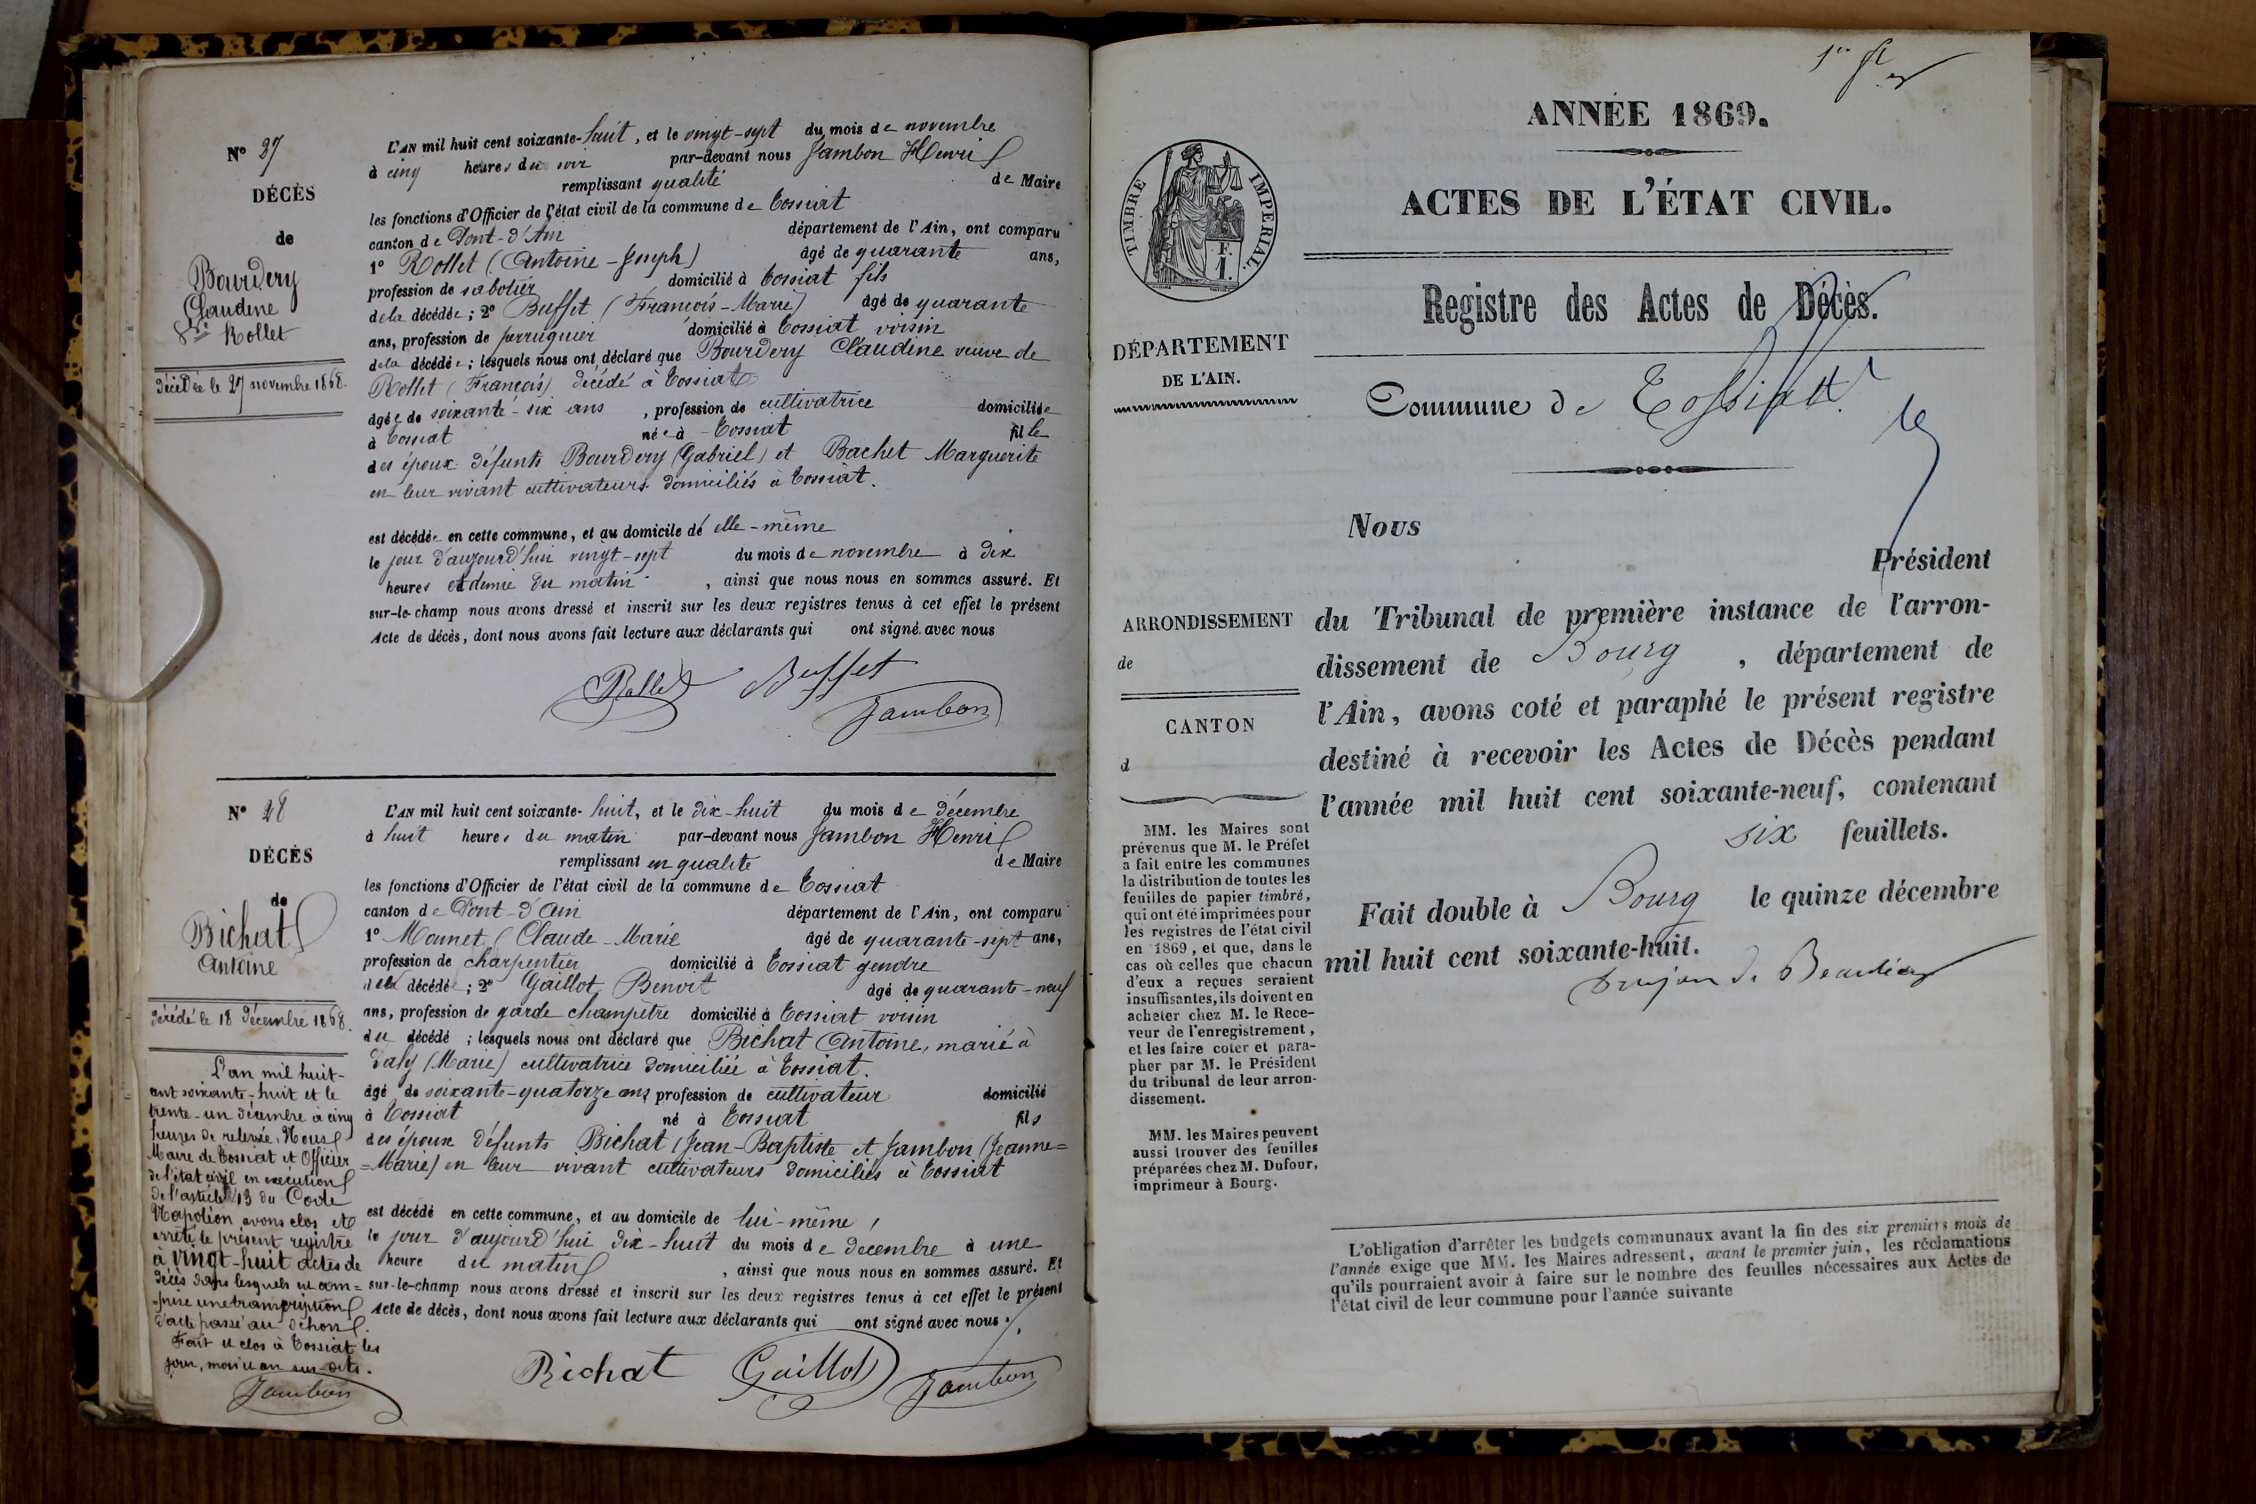 N° 27
DÉCÈS
de
Bourdery
Claudine
Vve Rollet
décédée le 27 novembre 1868.
L'AN mil huit cent soixante-huit, et le vingt-sept du mois de novembre
à cinq heures du soir par-devant nous Jambon Henri
remplissant qualité de Maire
les fonctions d'Officier de l'état civil de la commune de Tossiat
canton de Pont-d'Ain département de l'Ain, ont comparu
1° Rollet (Antoine-Joseph) âgé de quarante ans,
profession de sabotier domicilié à Tossiat fils
de la décédée; 2° Buffet (François-Marie) âgé de quarante
ans, profession de perruquier domicilié à Tossiat voisin
de la décédée; lesquels nous ont déclaré que Bourdery Claudine veuve de
Rollet (François) décédé à Tossiat
âgée de soixante-six ans, profession de cultivatrice domiciliée
à Tossiat née à Tossiat fille
des époux défunts Bourdery (Gabriel) et Bachet Marguerite
en leur vivant cultivateurs domiciliés à Tossiat.
est décédée en cette commune, et au domicile de elle-même
le jour d'aujourd'hui vingt-sept du mois de novembre à dix
heures et demie du matin, ainsi que nous nous en sommes assuré. Et
sur-le-champ nous avons dressé et inscrit sur les deux registres tenus à cet effet le présent
Acte de décès, dont nous avons fait lecture aux déclarants qui ont signé avec nous
Rollet Buffet
Jambon
N° 28
DÉCÈS
de
Bichat
Antoine
décédé le 18 Décembre 1868.
L'AN mil huit cent soixante-huit, et le dix-huit du mois de décembre
à huit heures du matin par-devant nous Jambon Henri
remplissant en qualité de Maire
les fonctions d'Officier de l'état civil de la commune de Tossiat
canton de Pont-d'Ain département de l'Ain, ont comparu
1° Monnet (Claude-Marie âgé de quarante-sept ans,
profession de charpentier domicilié à Tossiat gendre
de la décédé; 2° Gaillot Benoit âgé de quarante-neuf
ans, profession de garde champêtre domicilié à Tossiat voisin
du décédé; lesquels nous ont déclaré que Bichat Antoine, marié à
(Marie) cultivatrice domiciliée à Tossiat.
âgé de soixante-quatorze ans profession de cultivateur domicilié
à Tossiat né à Tossiat fils
des époux défunts Bichat (Jean-Baptiste et Jambon (Jeanne=
=Marie) en leur vivant cultivateurs domiciliés à Tossiat
est décédé en cette commune, et au domicile de lui-même,
le jour d'aujourd'hui dix-huit du mois de decembre à une
heure du matin, ainsi que nous nous en sommes assuré. Et
sur-le-champ nous avons dressé et inscrit sur les deux registres tenus à cet effet le présent
Acte de décès, dont nous avons fait lecture aux déclarants qui ont signé avec nous.
Bichat Gaillot Jambon
L'an mil huit-
cent soixante-huit et le
trente-un décembre à cinq
heures de relevée, Nous
Maire de Tossiat et Officier
de l'état civil en exécution
de l'article 43 du Code
Napoléon avons clos et
arrêté le présent registre
à vingt-huit actes de
décès dans lesquels est com=
=prise une transcription
d'acte passé au dehors.
Fait et clos à Tossiat les
jour, mois et an sus-dits.
Jambon
1er
ANNÉE 1869.
ACTES DE L'ÉTAT CIVIL.
TIMBRE IMPERIAL.
F.
1.
Registre des Actes de Décès.
DÉPARTEMENT
DE L'AIN.
Commune de Tossiat
Nous
Président
du Tribunal de première instance de l'arron-
dissement de Bourg, département de
l'Ain, avons coté et paraphé le présent registre
destiné à recevoir les Actes de Décès pendant
l'année mil huit cent soixante-neuf, contenant
six feuillets.
Fait double à Bourg le quinze décembre
mil huit cent soixante-huit.
ARRONDISSEMENT
de
CANTON
d
MM. les Maires sont
prévenus que M. le Préfet
a fait entre les communes
la distribution de toutes les
feuilles de papier timbré,
qui ont été imprimées pour
les registres de l'état civil
en 1869, et que, dans le
cas où celles que chacun
d'eux a reçues seraient
insuffisantes, ils doivent en
acheter chez M. le Rece-
veur de l'enregistrement,
et les faire coter et para-
pher par M. le Président
du tribunal de leur arron-
dissement.
MM. les Maires peuvent
aussi trouver des feuilles
préparées chez M. Dufour,
imprimeur à Bourg.
L'obligation d'arrêter les budgets communaux avant la fin des six premiers mois de
l'année exige que MM. les Maires adressent, avant le premier juin, les réclamations
qu'ils pourraient avoir à faire sur le nombre des feuilles nécessaires aux Actes de
l'état civil de leur commune pour l'année suivante